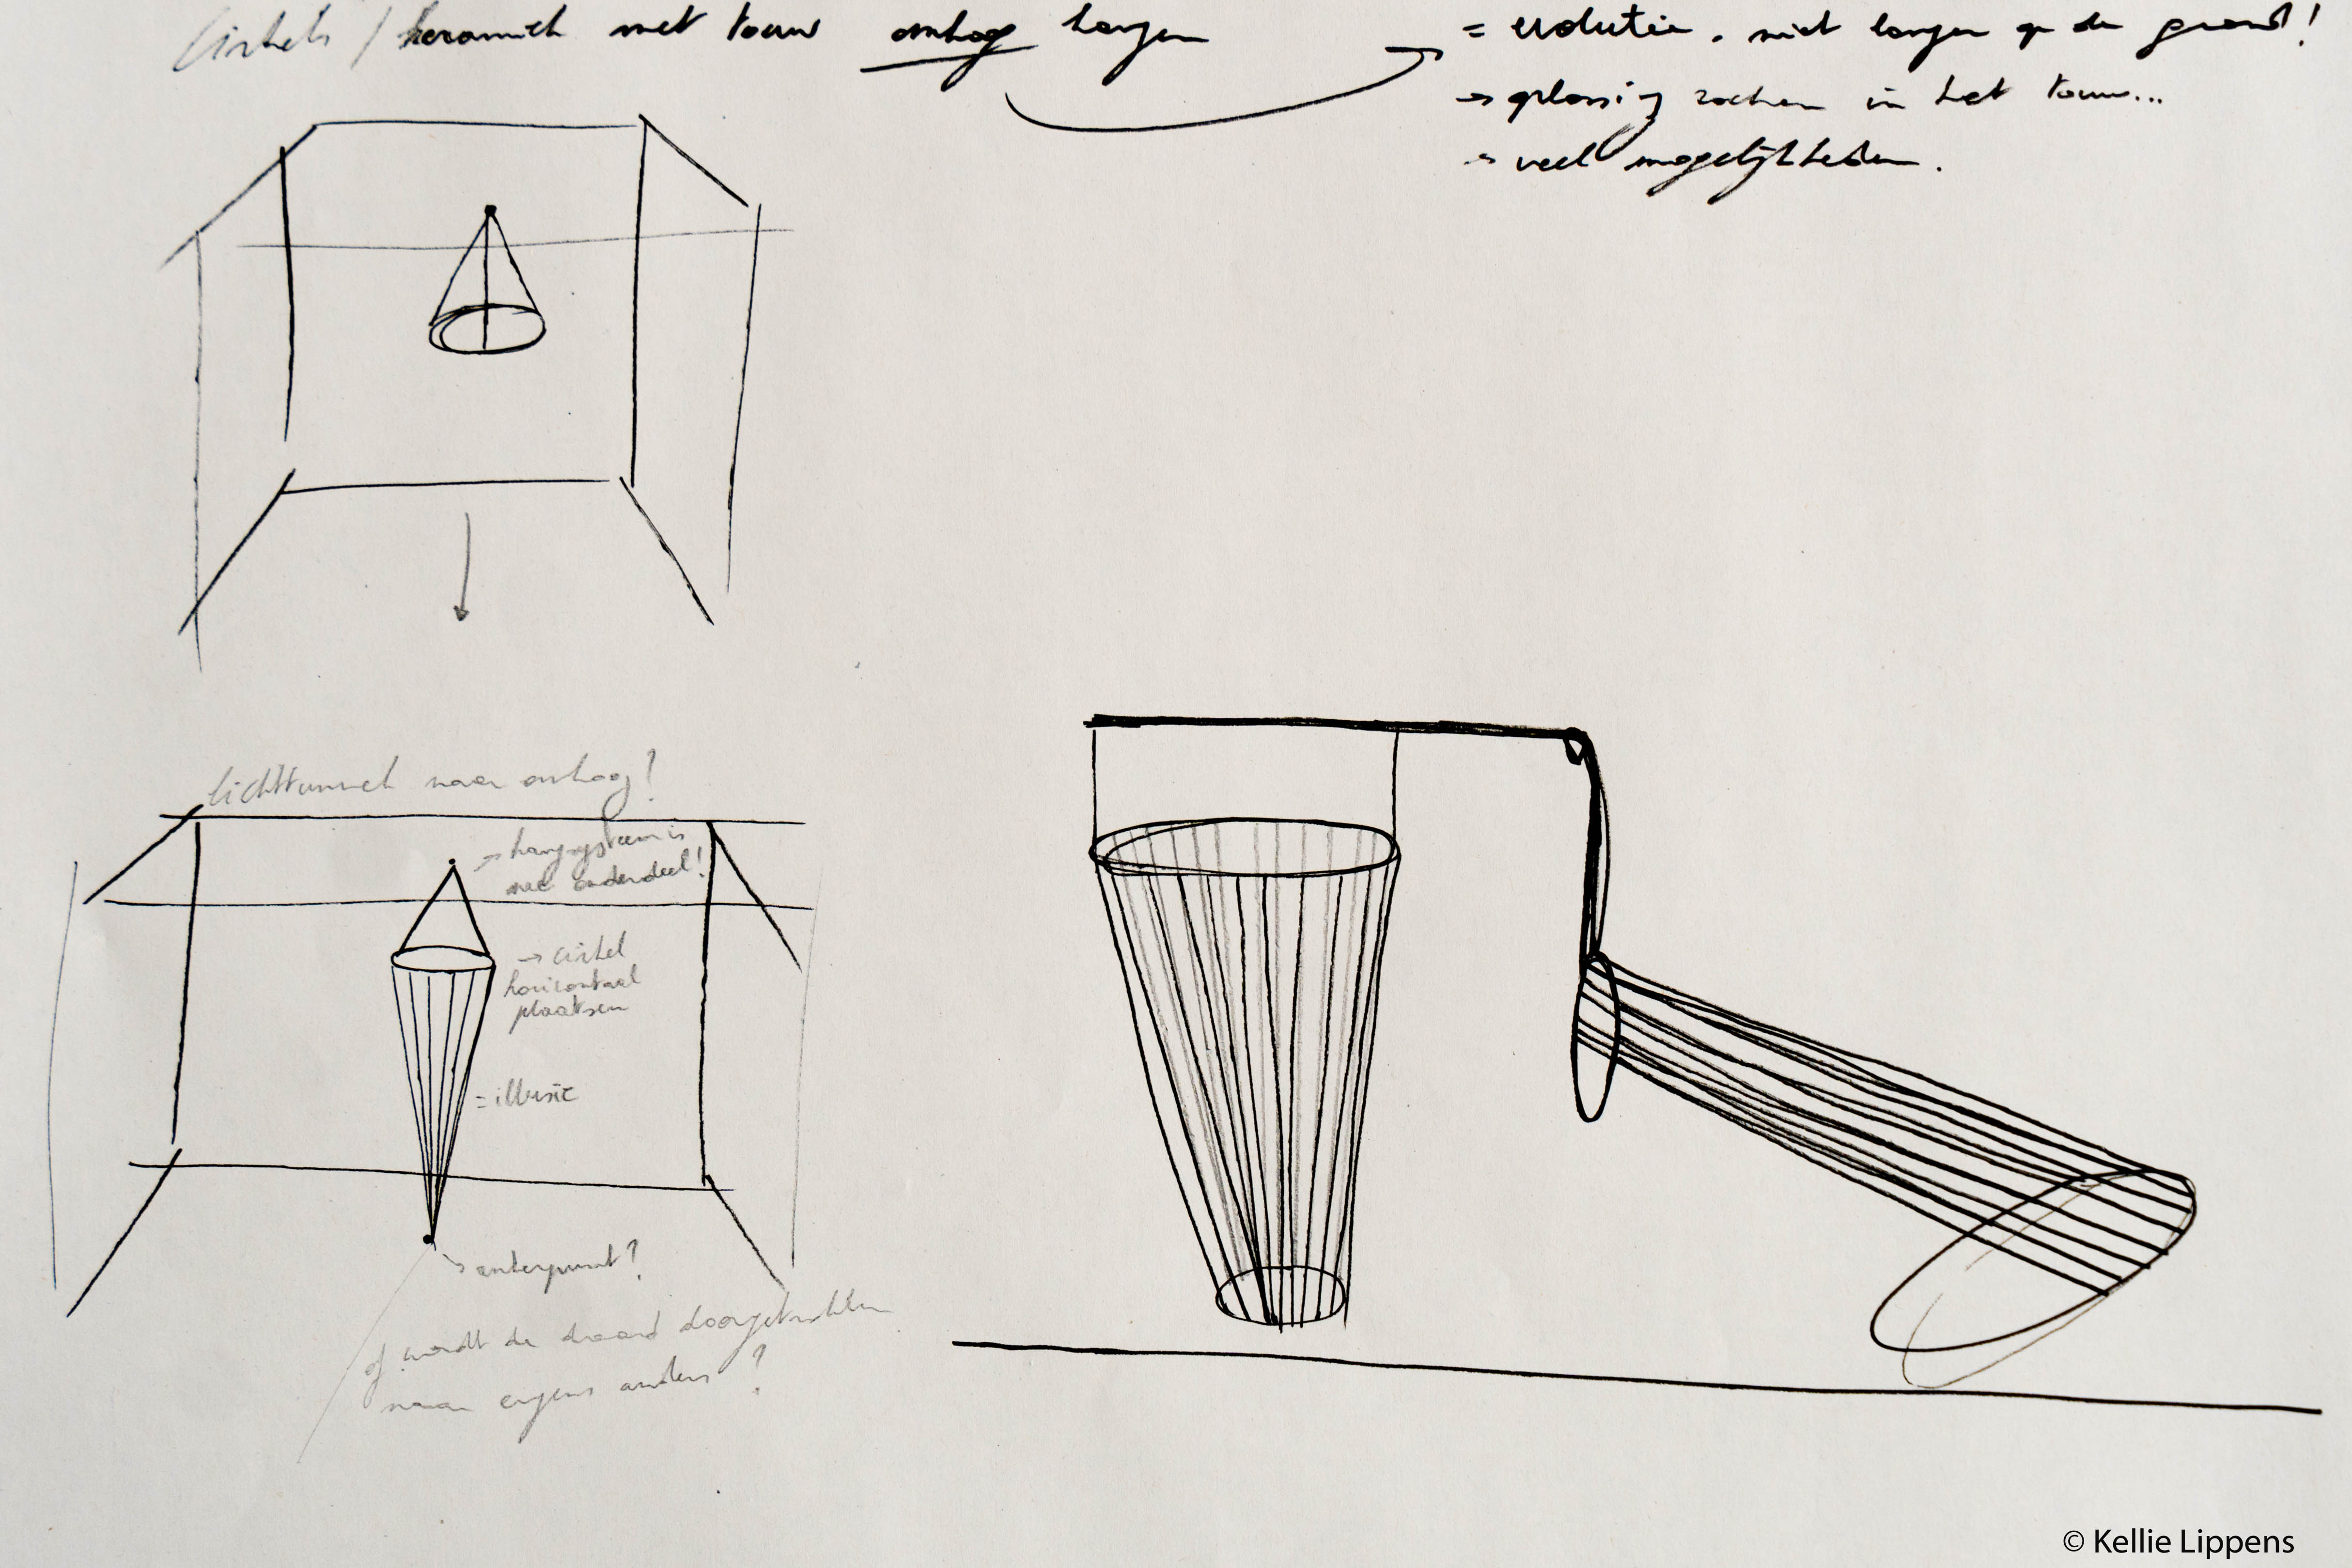 Cirkels / keramiek met touw omhoog hangen
= evolutie, niet langer op de grond!
→ oplossing zoeken in het touw...
→ veel mogelijkheden.
lichttunnel naar omhoog?
→ hangsysteem is
mee onderdeel!
→ cirkel
horizontaal
plaatsen
= illusie
centerpunt?
of wordt de draad doorgetrokken
naar ergens anders?
© Kellie Lippens